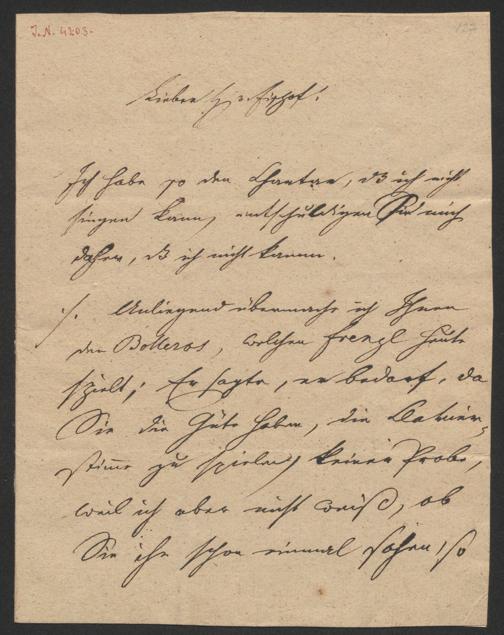 J.N. 4203.
127
Lieber H v. Fischhof!
Ich habe so den Chatar, dß ich nicht
singen kann, entschuldigen Sie mich
daher, dß ich nicht komme.
./. Anliegend übermache ich Ihnen
den Bolleros, welchen Frenzl heute
spielt; Er sagte, er bedarf, da
Sie die Güte haben, die Klavier-
stimme zu spielen, keiner Probe,
weil ich aber nicht weiß, ob
Sie ihn schon einmal sahen, so